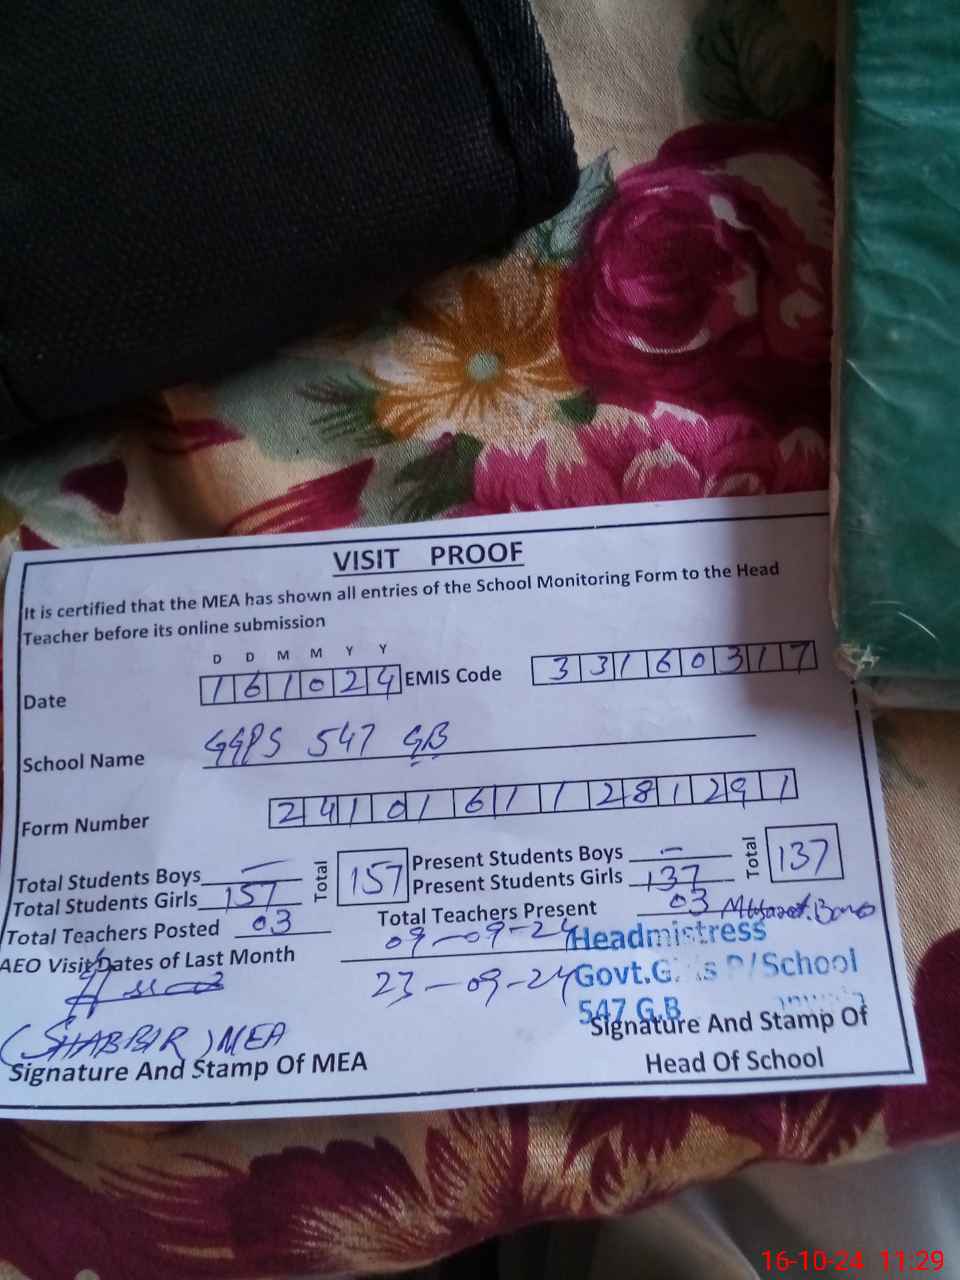 VISIT PROOF
It is certified that the MEA has shown all entries of the School Monitoring Form to the Head
Teacher before its online submission
D D M M Y Y
Date 161024 EMIS Code 33160317
School Name GGPS 547 GB
Form Number 24101611281291
Total Students Boys — Total 157 Present Students Boys — Total 137
Total Students Girls 157 Present Students Girls 137
Total Teachers Posted 03 Total Teachers Present 03
AEO Visit Dates of Last Month 09-09-24
23-09-24
Headmistress
Govt.G. P/School
547 G.B
(SHABBIR) MEA
Signature And Stamp Of MEA
Signature And Stamp Of
Head Of School
16-10-24 11:29